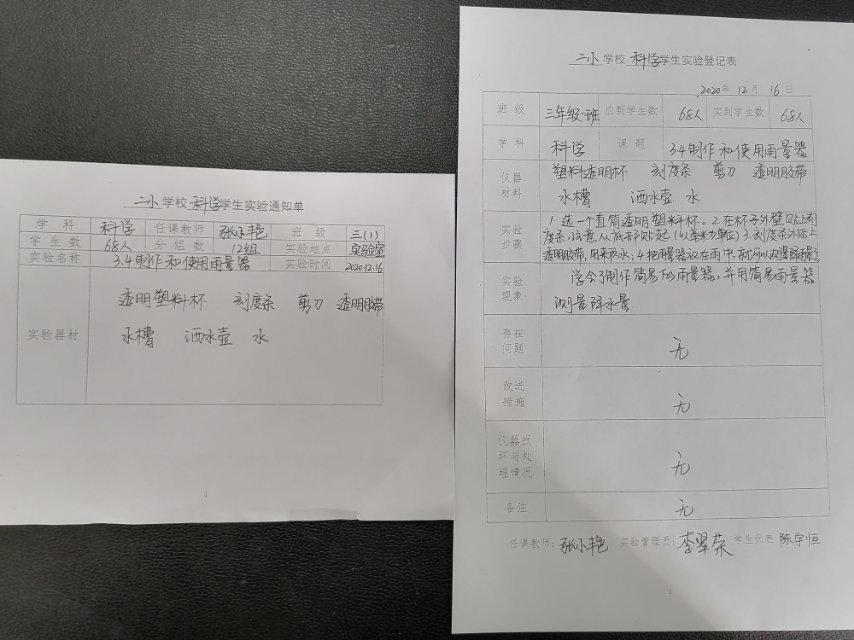 二小学校科学学生实验通知单
学科 科学 任课教师 张小艳 班级 三(1)
学生数 68人 分组数 12组 实验地点 实验室
实验名称 3.4制作和使用雨量器 实验时间 2020.12.16
透明塑料杯 刻度条 剪刀 透明胶带
实验器材 水槽 洒水壶 水
二小学校科学学生实验登记表
2020年12月16日
班级 三年级一班 应到学生数 68人 实到学生数 68人
学科 科学 课题 3.4制作和使用雨量器
仪器材料 塑料透明杯 刻度条 剪刀 透明胶带
水槽 洒水壶 水
实验步骤 1.选一个直筒透明塑料杯。2.在杯子外壁贴上刻
度条,注意从底部贴起(以毫米为单位)3.刻度条外贴上
透明胶带,用来防水;4.把雨量器放在雨中,就可以测量降雨量了
实验现象 学会了制作简易的雨量器,并用简易雨量器
测量降水量
存在问题 无
改进措施 无
仪器损坏与处理情况 无
备注 无
任课教师:张小艳 实验管理员:李翠荣 学生代表 陈宇恒